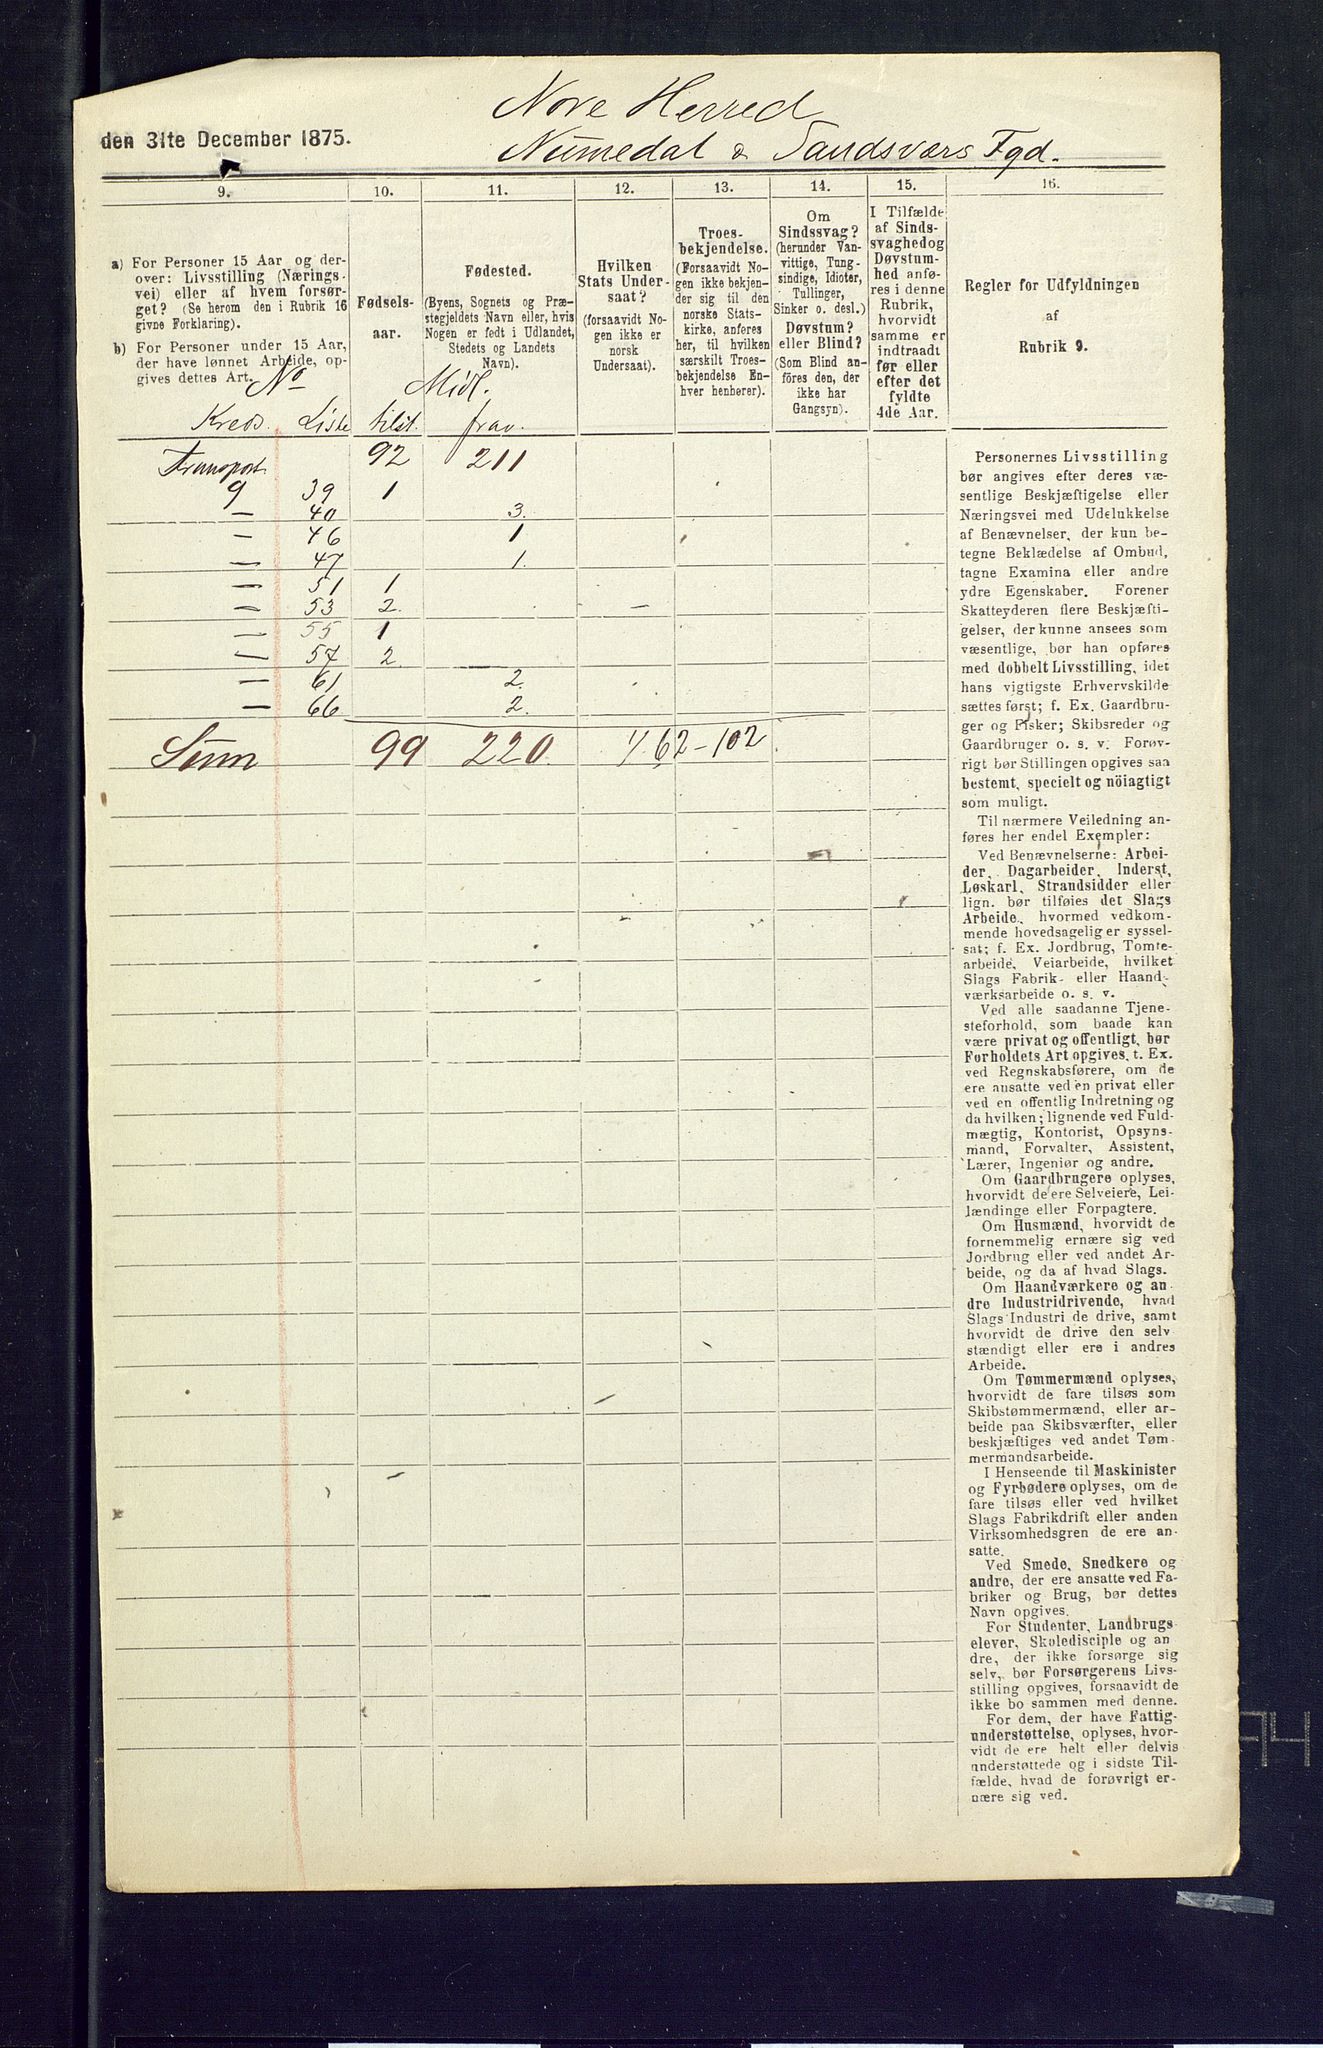 Nore Herred
den 31te December 1875.
Numedal & Sandsværs Fgd.
9.
a) For Personer 15 Aar og der-
over: Livsstilling (Nærings-
vei) eller af hvem forsør-
get? (Se herom den i Rubrik 16
givne Forklaring).
b) For Personer under 15 Aar,
der have lønnet Arbeide, op-
gives dettes Art.
No
Kreds. Liste
10.
Fødsels-
aar.
11.
Fødested.
(Byens, Sognets og Præ-
stegjeldets Navn eller, hvis
Nogen er født i Udlandet,
Stedets og Landets
Navn).
Midl.
tilst. frav.
12.
Hvilken
Stats Under-
saat?
(forsaavidt No-
gen ikke er
norsk
Undersaat).
13.
Troes-
bekjendelse.
(Forsaavidt No-
gen ikke bekjen-
der sig til den
norske Stats-
kirke, anføres
her, til hvilken
særskilt Troes-
bekjendelse En-
hver henhører).
14.
Om
Sindssvag?
(herunder Van-
vittige, Tung-
sindige, Idioter,
Tullinger,
Sinker o. desl.)
Døvstum?
eller Blind?
(Som Blind an-
föres den, der
ikke har
Gangsyn).
15.
I Tilfælde
af Sinds-
svaghed og
Døvstum-
hed anfø-
res i denne
Rubrik,
hvorvidt
samme er
indtraadt
før eller
efter det
fyldte
4de Aar.
16.
Regler for Udfyldningen
af
Rubrik 9.
Transport 92 211
9 39 1
— 40 3.
— 46 1
— 47 1.
— 51 1
— 53 2.
— 55 1
— 57 2
— 61 2.
— 66 2.
Sum 99 220. 62-102
Personernes Livsstilling
bør angives efter deres væ-
sentlige Beskjæftigelse eller
Næringsvei med Udelukkelse
af Benævnelser, der kun be-
tegne Beklædelse af Ombud,
tagne Examina eller andre
ydre Egenskaber. Forener
Skatteyderen flere Beskjæfti-
gelser, der kunne ansees som
væsentlige, bør han opføres
med dobbelt Livsstilling, idet
hans vigtigste Erhvervskilde
sættes først; f. Ex. Gaardbru-
ger og Fisker; Skibsreder og
Gaardbruger o. s. v. Forøv-
rigt bør Stillingen opgives saa
bestemt, specielt og nöiagtigt
som muligt.
Til nærmere Veiledning an-
føres her endel Exempler:
Ved Benævnelserne: Arbei-
der, Dagarbeider, Inderst,
Løskarl, Strandsidder eller
lign. bør tilføies det Slags
Arbeide, hvormed vedkom-
mende hovedsagelig er syssel-
sat; f. Ex. Jordbrug, Tomte-
arbeide, Veiarbeide, hvilket
Slags Fabrik- eller Haand-
værksarbeide o. s. v.
Ved alle saadanne Tjene-
steforhold, som baade kan
være privat og offentligt, bør
Forholdets Art opgives, t. Ex.
ved Regnskabsførere, om de
ere ansatte ved en privat eller
ved en offentlig Indretning og
da hvilken; lignende ved Fuld-
mægtig, Kontorist, Opsyns-
mand, Forvalter, Assistent,
Lærer, Ingeniør og andre.
Om Gaardbrugere oplyses,
hvorvidt de ere Selveiere, Lei-
lændinge eller Forpagtere.
Om Husmænd, hvorvidt de
fornemmelig ernære sig ved
Jordbrug eller ved andet Ar-
beide, og da af hvad Slags.
Om Haandværkere og an-
dre Industridrivende, hvad
Slags Industri de drive, samt
hvorvidt de drive den selv
stændigt eller ere i andres
Arbeide.
Om Tømmermænd oplyses,
hvorvidt de fare tilsøs som
Skibstømmermænd, eller ar-
beide paa Skibsværfter, eller
beskjæftiges ved andet Tøm-
mermandsarbeide.
I Henseende til Maskinister
og Fyrbødere oplyses, om de
fare tilsøs eller ved hvilket
Slags Fabrikdrift eller anden
Virksomhedsgren de ere an-
satte.
Ved Smede, Snedkere og
andre, der ere ansatte ved Fa-
briker og Brug, bør dettes
Navn opgives.
For Studenter, Landbrugs
elever, Skoledisciple og an
dre, der ikke forsørge sig
selv, bør Forsørgerens Livs-
stilling opgives, forsaavidt de
ikke bo sammen med denne.
For dem, der have Fattig-
understøttelse, oplyses, hvor-
vidt de ere helt eller delvis
understøttede og i sidste Til-
fælde, hvad de forøvrigt er-
nære sig ved.